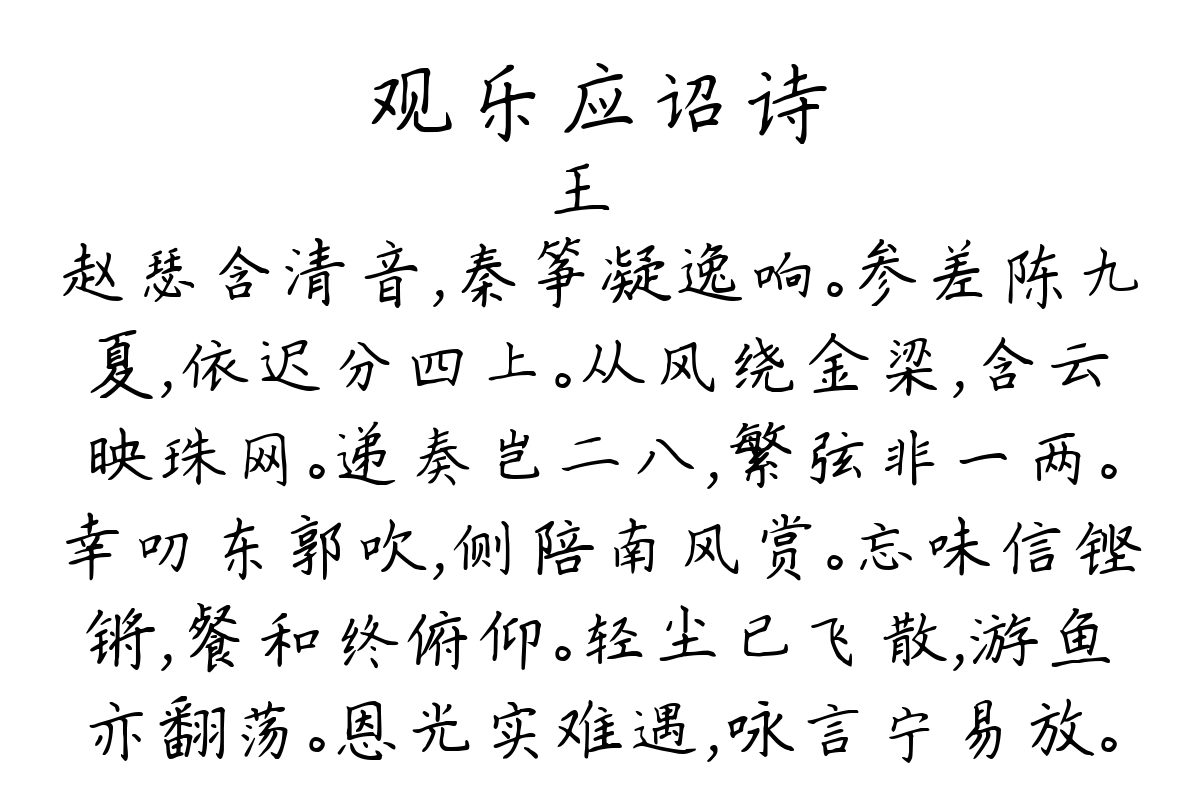 观乐应诏诗
王
赵瑟含清音,秦筝凝逸响。参差陈九
夏,依迟分四上。从风绕金梁,含云
映珠网。递奏岂二八,繁弦非一两。
幸叨东郭吹,侧陪南风赏。忘味信铿
锵,餐和终俯仰。轻尘已飞散,游鱼
亦翻荡。恩光实难遇,咏言宁易放。